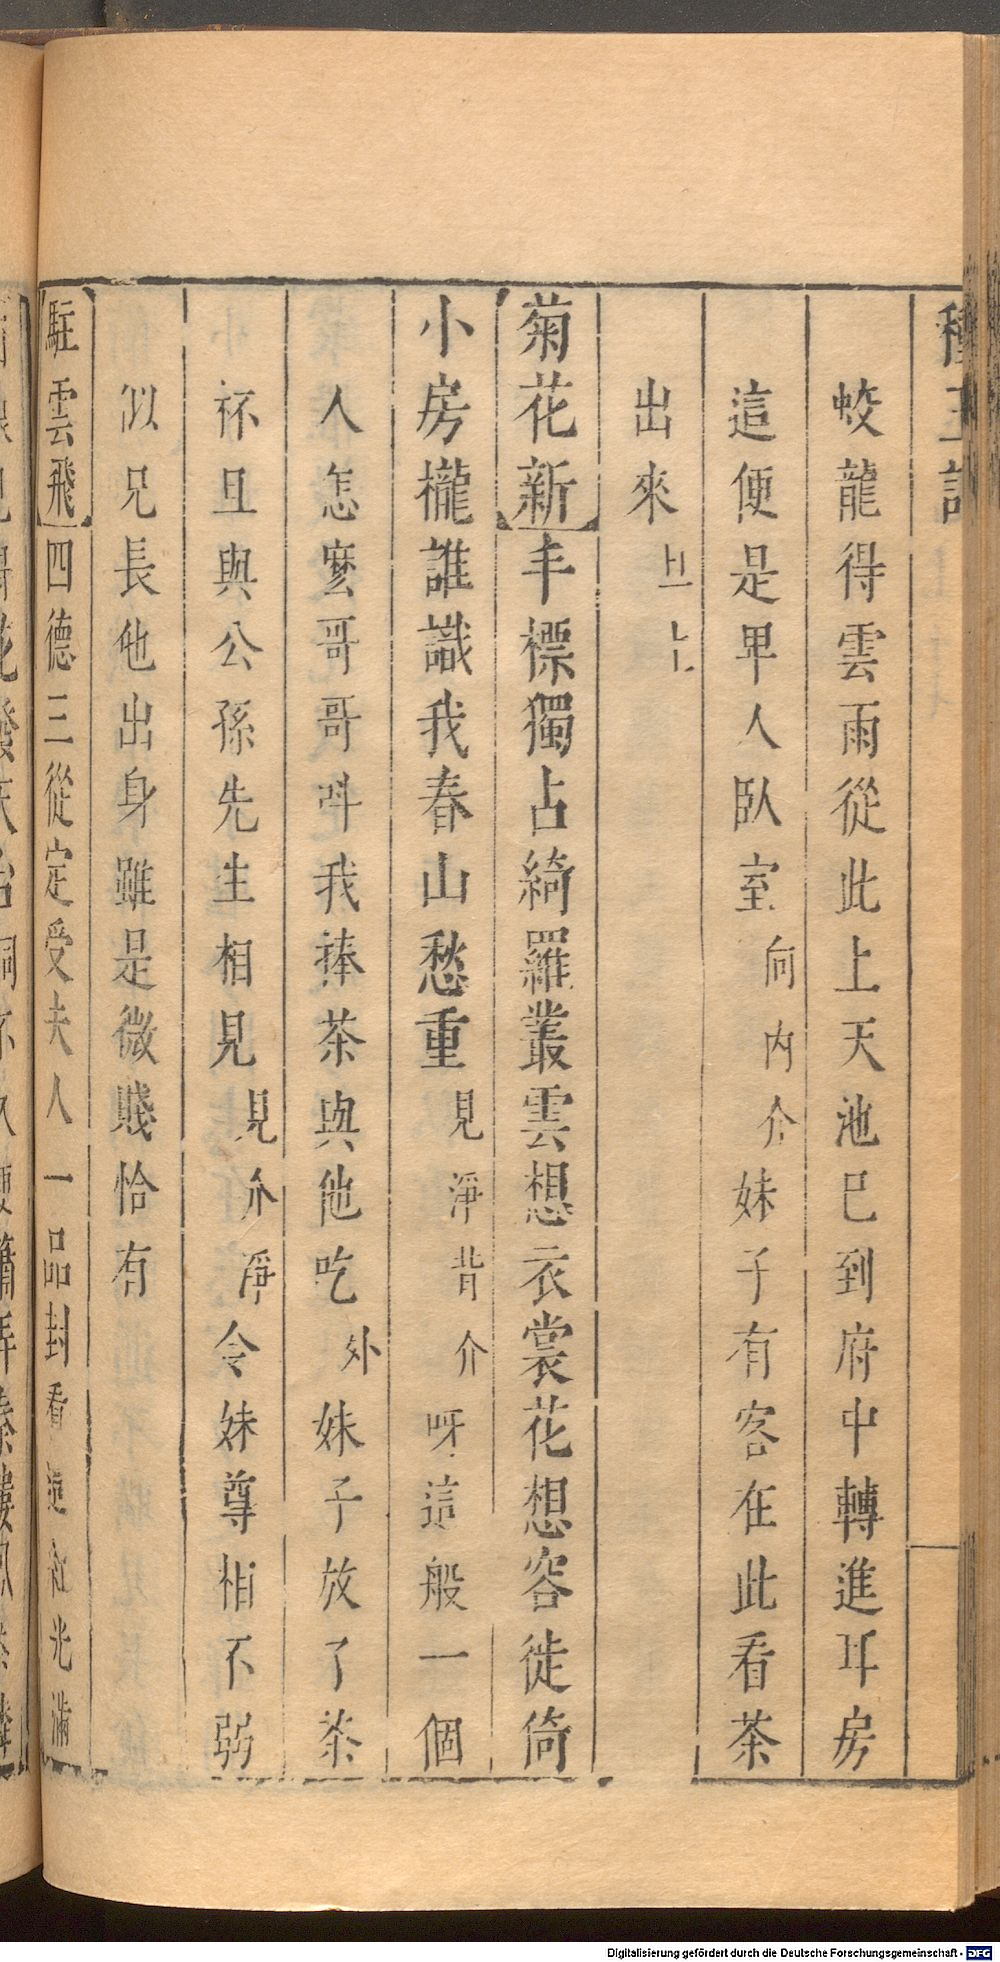 種玉記
蛟龍得雲雨從此上天池已到府中轉進耳房
這便是卑人臥室向内介妹子有客在此看茶
出來旦上
菊花新丰標獨占綺羅叢雲想衣裳花想容徙倚
小房櫳誰識我春山愁重見淨背介呀這般一個
人怎麽哥哥呌我捧茶與他吃外妹子放了茶
杯且與公孫先生相見見介淨令妹尊相不弱
似兄長他出身雖是微賤恰有
駐雲飛四德三從定受夫人一品封看紅光滿
Digitalisierung gefördert durch die Deutsche Forschungsgemeinschaft - DFG